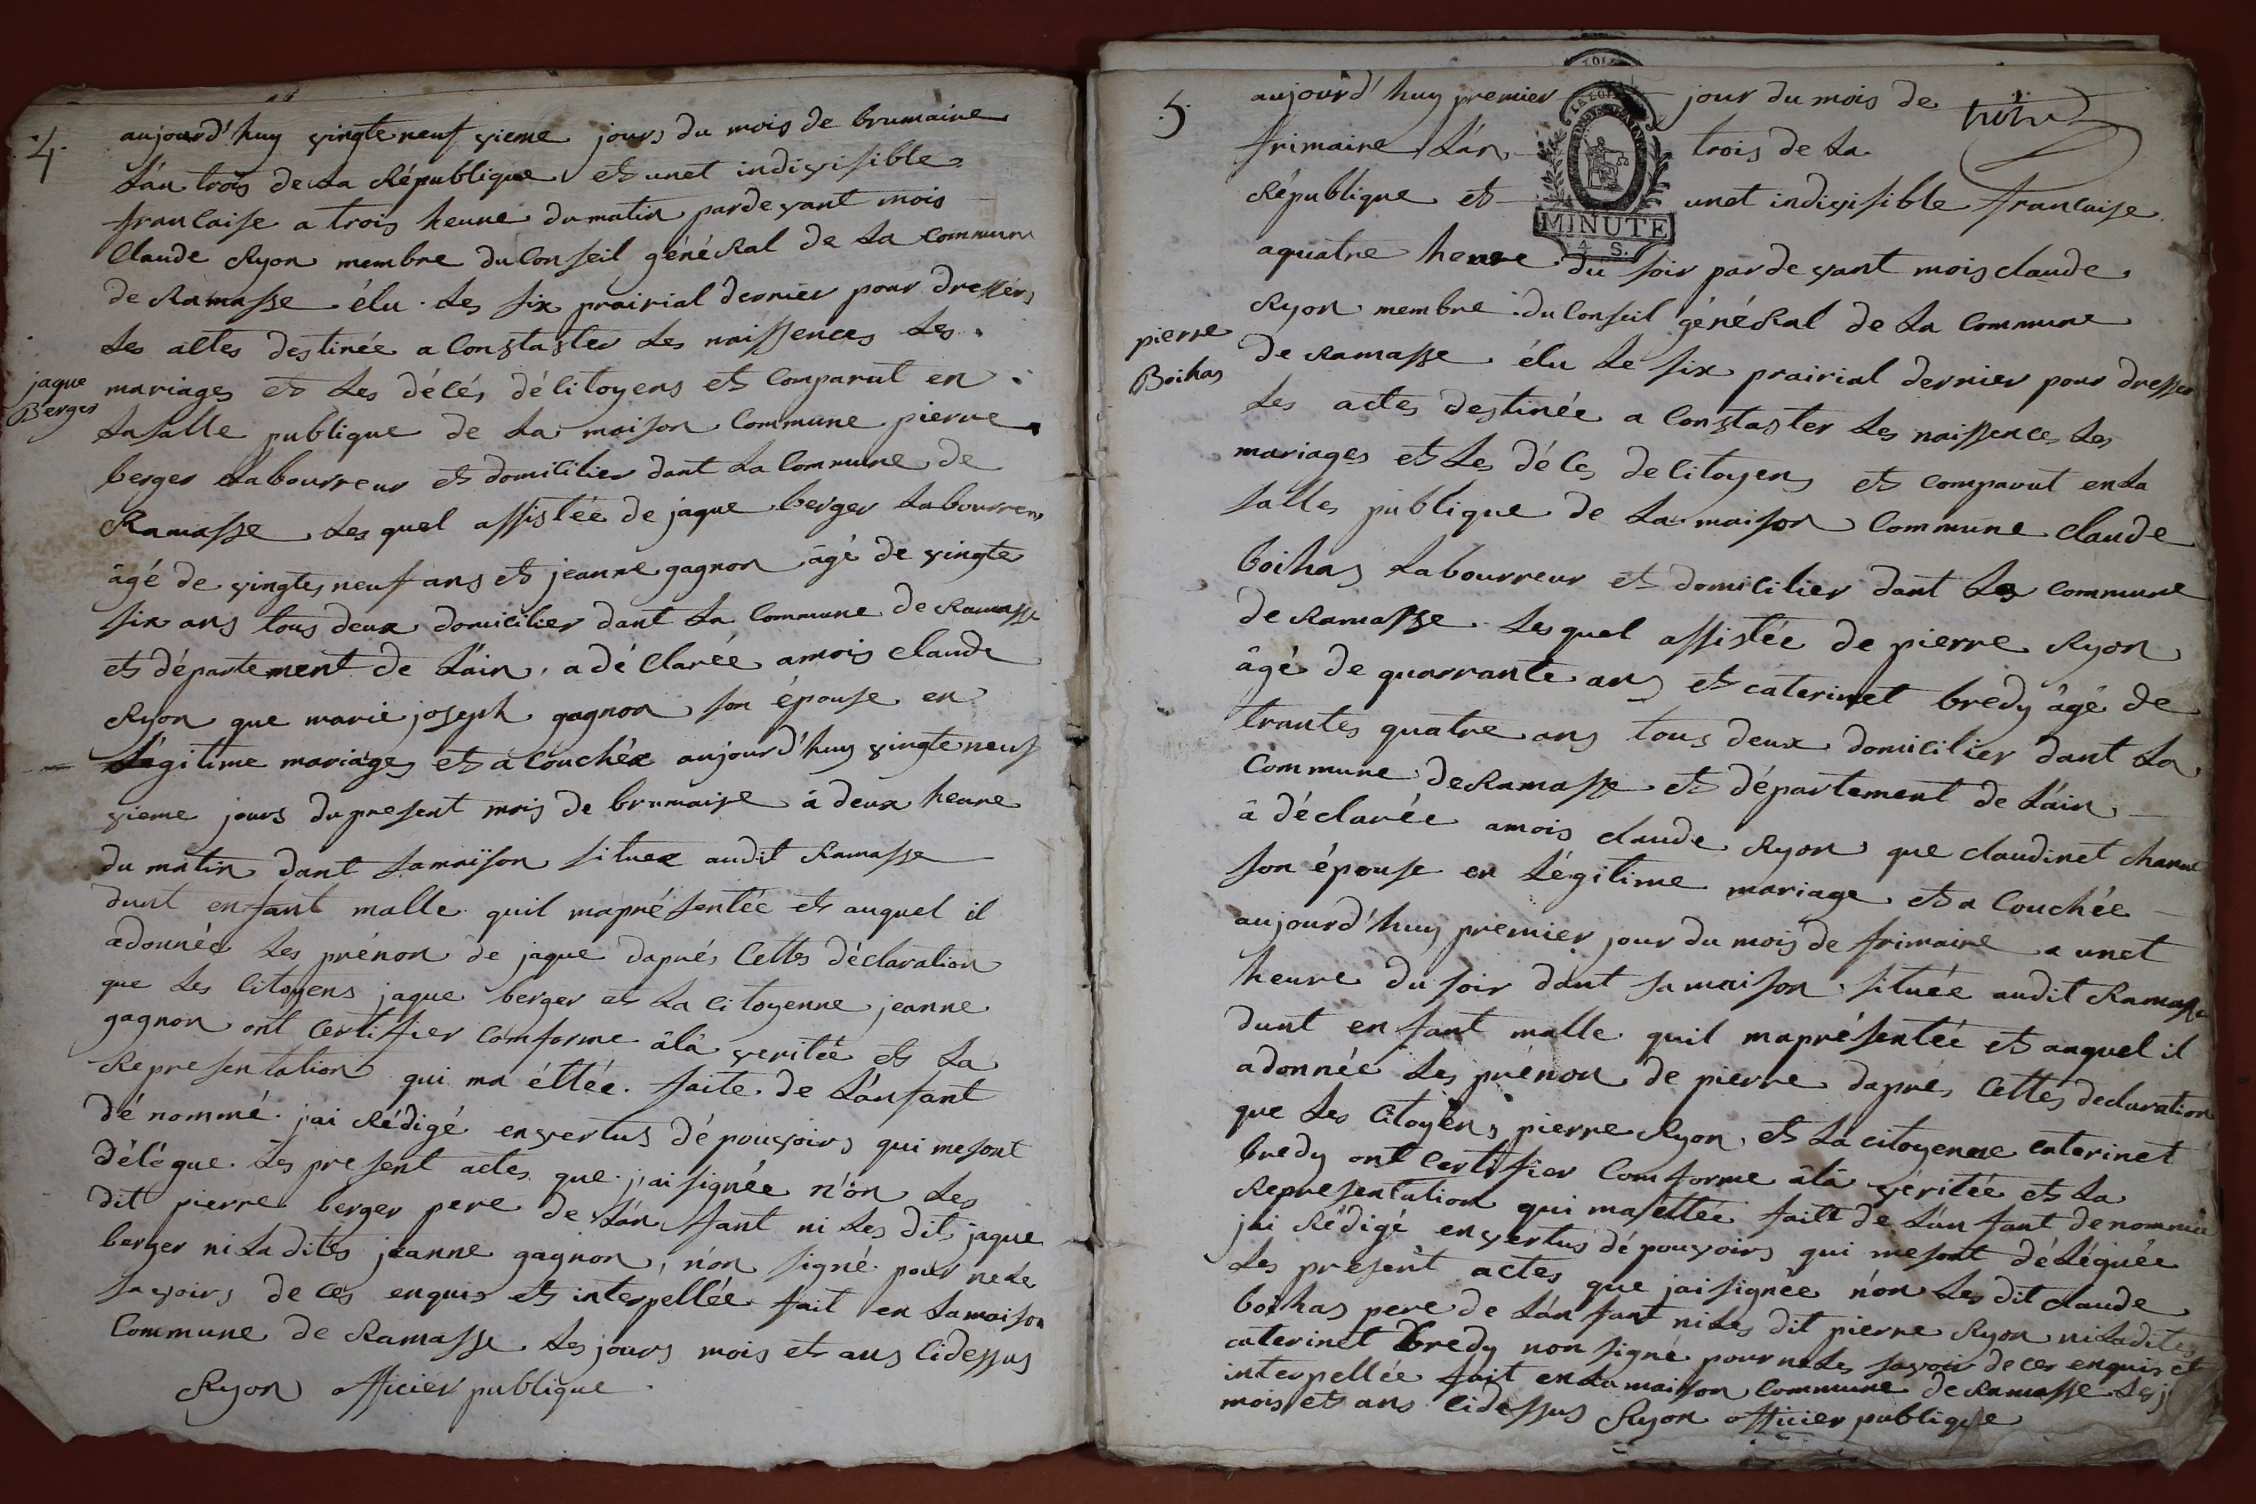 4.
aujourd'huy vingte neuf vieme jours du mois de brumaire
L'an trois de La République et unet indivisible
francaise a trois heure du matin pardevant mois
Claude Ryon membre du Conseil général de La commune
de Ramasse élu Les six prairial dernier pour dressers
Les actes destinée a Constaster Les naissences Les
jaque
Berger
mariages et Les décés décitoyens et comparut en
La salle publique de La maison Commune pierre
berger Labourreur et domicilier dant La Commune de
Ramasse Lesquel assistée de jaque berger Labourreur
âgé de vingte neuf ans et jeanne gagnon âgé de vingte
six ans tous deux domicilier dant La Commune de Ramasse
et département de L'áin, a déClarée amois claude
Ryon que marie joseph gagnon son épouse en
Légitime mariages et á Couchée aujourd'huy vingte neuf
vieme jours du present mois de brumaire à deux heure
du matin dant Samaison situee audit Ramasse
dunt enfant malle quil maprésentée et auquel il
adonnée Les prénon de jaque daprés Cettes déclaration
que Les Citoyens jaque berger et La citoyenne jeanne
gagnon ont Certiffier Comforme âlà veritée et La
Representation qui ma éttée faite de L'ánfant
dénommé jai Rédigé envertus dépouvoirs qui mesont
délégue Les present actes que jai signée n'ón Les
dit pierre berger pere de L'án fant ni Les dit jaque
berger ni La dites jeanne gagnon, n'ón signé pour neLe
savoirs de ces enquis et interpellée fait en Lamaison
Commune de Ramasse Les jours mois et ans Cidessus
Ryon officier publique
5.
aujourd'huy premier jour du mois de
frimaire L'án trois de La
République et unet indivisible francaise
MINUTE
4 S.
aquatre heure du soir pardevant mois claude
Ryon membre du Conseil général de La Commune
pierre
Boihas
de Ramasse élu Le six prairial dernier pour dresser
Les actes destinée a Constaster Les naissences Les
mariages et Les décés decitoyens et comparut enLa
salles publique de La maison Commune claude
boihas Labourreur et domicilier dant La commune
de Ramasse Lesquel assistée de pierre Ryon
âgé de quarrante ans et caterinet bredy âgé de
trantes quatre ans tous deux domicilier dant La
Commune de Ramasse et département de L'áin
â déclarée amois claude Ryon que claudinet
son épouse en Légitime mariage et a Couchée
aujourd'huy premier jour du mois de frimaire a unet
heure du soir dant sa maison située audit Ramasse
dunt enfant malle quil maprésentée et auquel il
adonnée Les prénon de pierre daprés Cettes declaration
que Les Citoyens pierre Ryon et La citoyenne caterinet
bredy ont Certiffier Comforme âlà véritée et La
Representation qui ma éttée faite de L'án fant denommé
jai Rédigé envertus dépouvoirs qui mesont déléguée
Les présent actes que jai signée n'ón Les dit claude
boihas pere de L'án fant ni Les dit pierre Ryon ni Ladites
caterinet bredy non signé pour neLes savoir de ces enquis et
interpellée fait enLa maison Commune de Ramasse Les j
mois et ans Cidessus Ryon officier publique